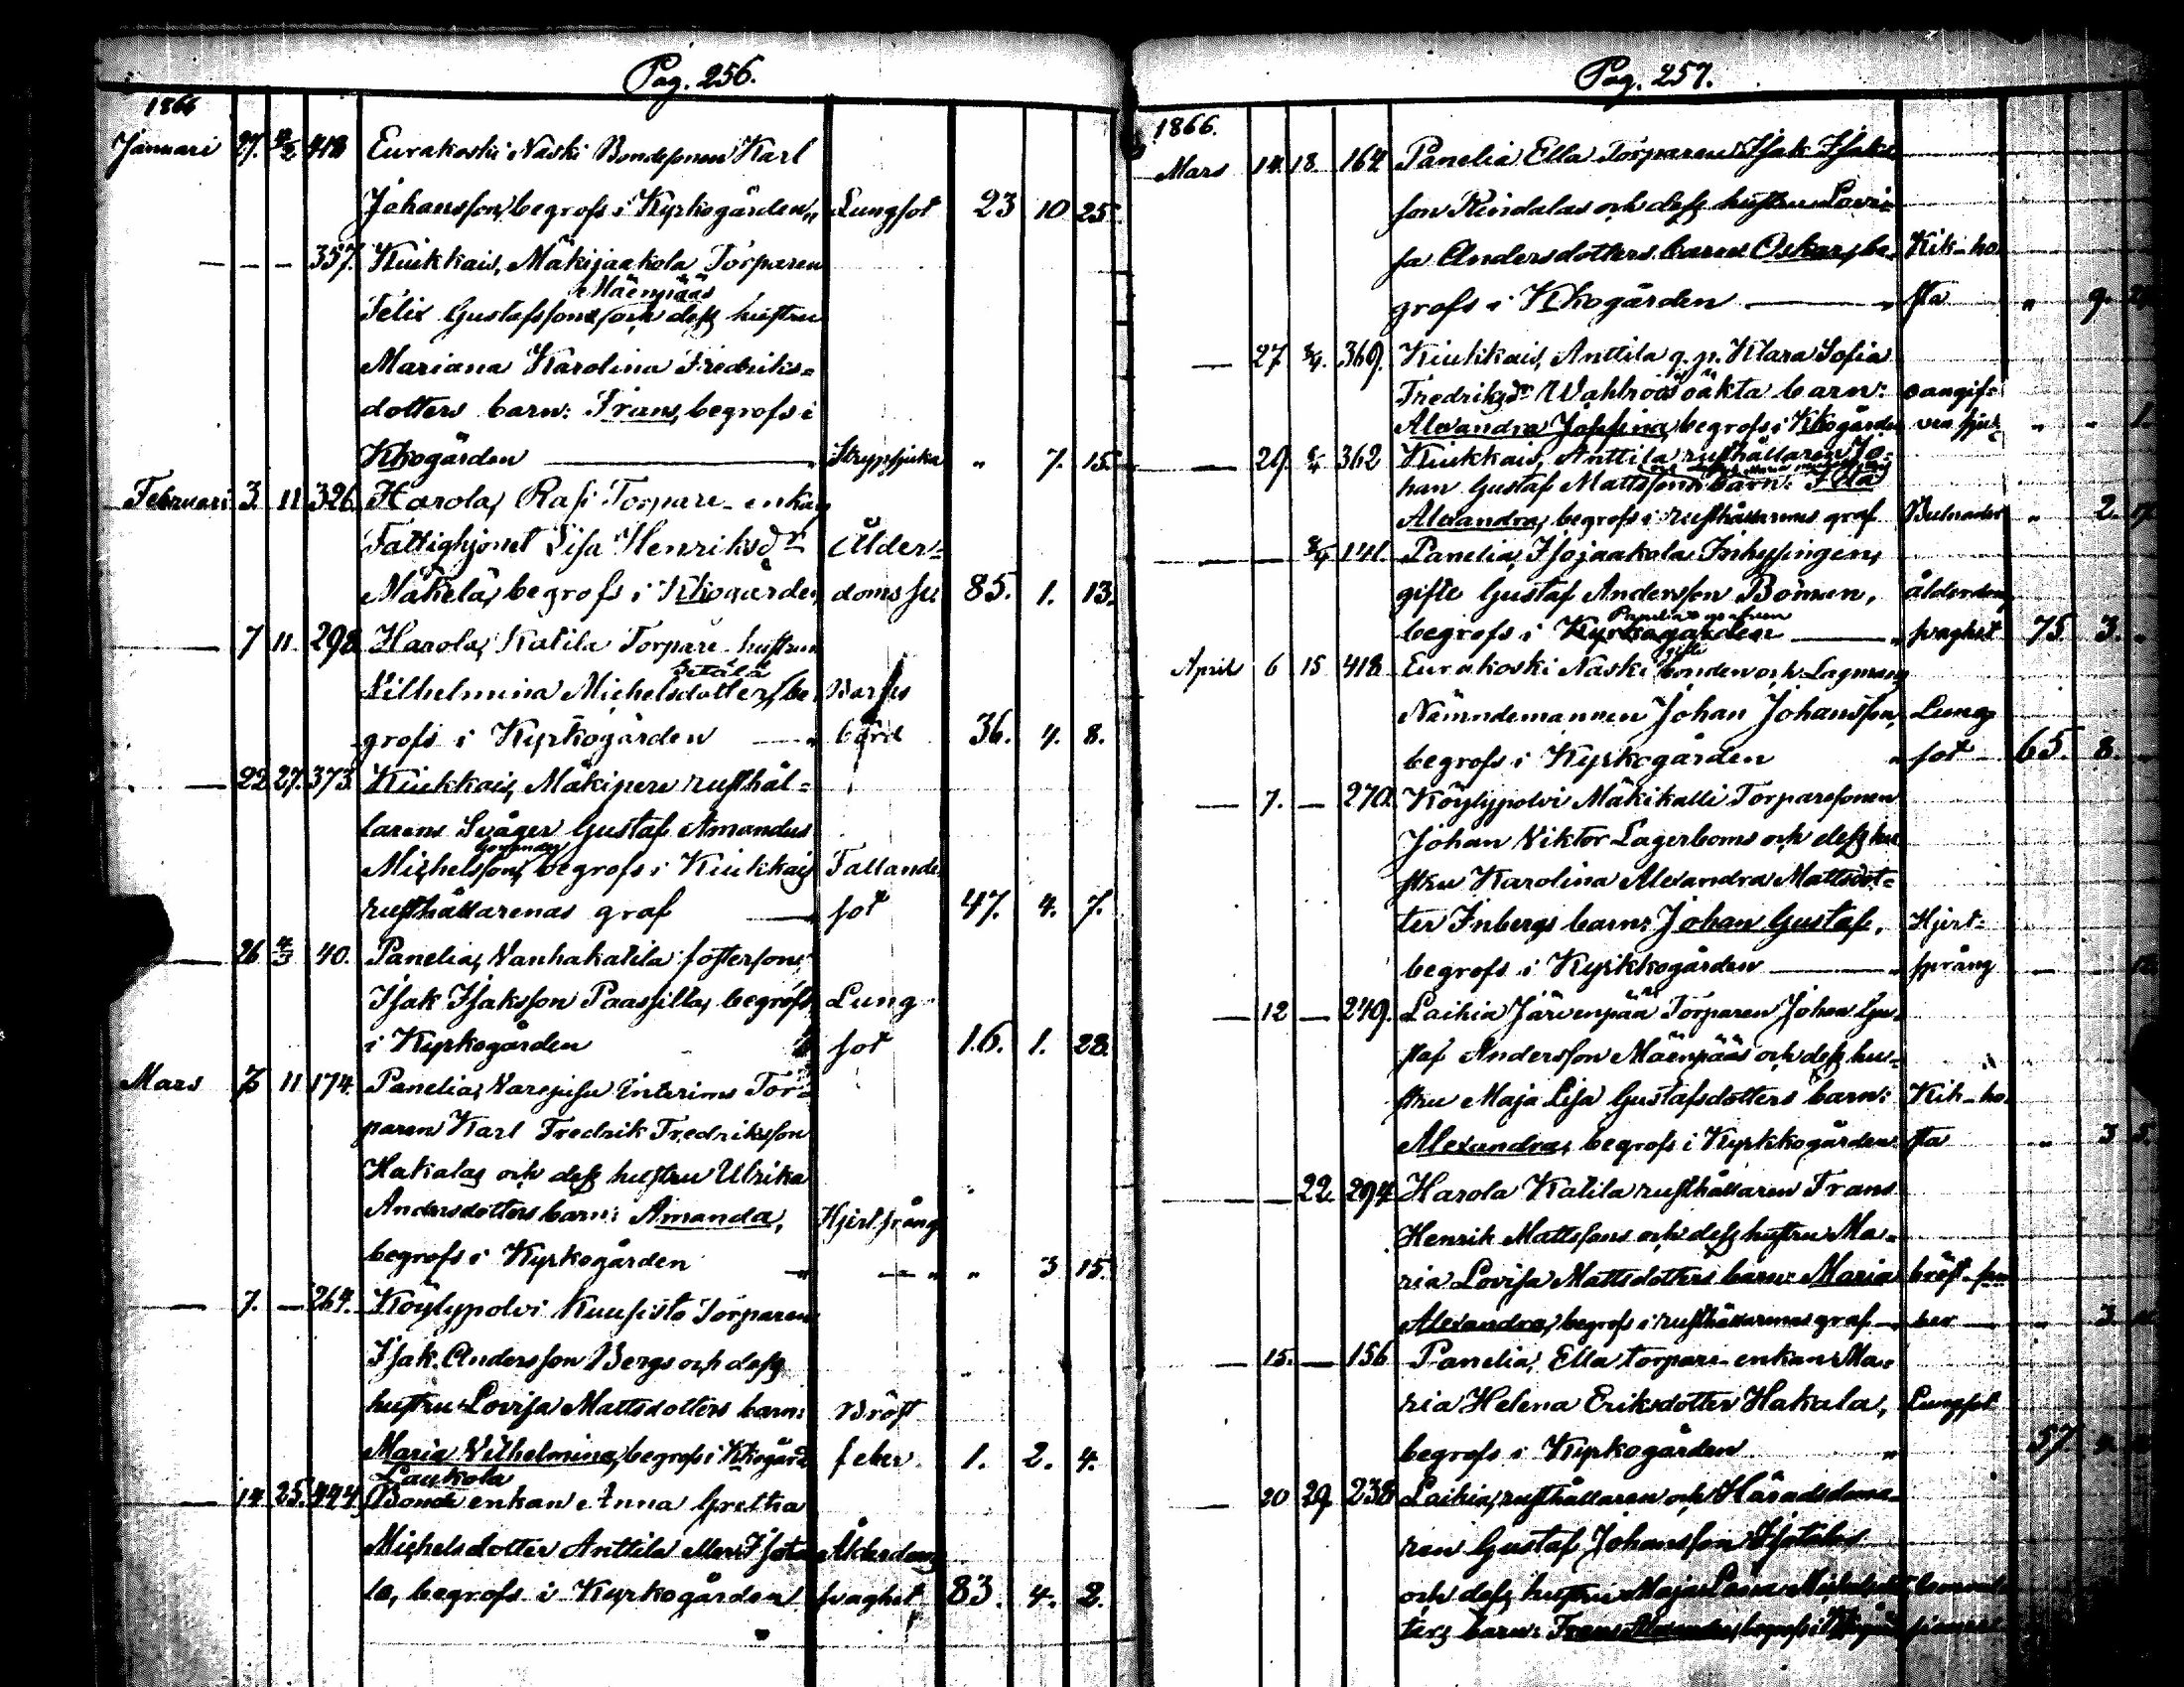 Pag. 256.
1866
Januari 27. 4/2 418 Eurakoski Naski Bondesonen Karl
Johansson, begrofs i Kyrkogården „ Lungsot 23 10 25.
— — — 357. Kiukkais, Mäkijaakola Torparen
Mäenpääs
Felix Gustafssons och dess hustru
Mariana Karolina Fredriks-
dotters barn: Frans, begrofs i
Kkogården — Strypsjuka „ 7. 15.
Februari 3 11 326. Harola, Rasi Torpare-enkan
Fattighjonet Lisa Henriksdr Ålder-
Mäkelä, begrofs i Kkogården doms 85. 1. 13.
— 7 11. 298 Harola, Katila Torpare hustrun
Setälä
Vilhelmina Michelsdotter, be- Barns
grofs i Kyrkogården — börd 36. 4. 8.
— 22 27. 373. Kiukkais, Mäkipere rusthål-
larens Svåger Gustaf Amandus
Michelsson, begrofs i Kiukkais Fallande
rusthållarenas graf — sot 47. 4. 7.
— 26 4/3 40. Panelia, Vanhakatila fosterson
Isak Isaksson Paassilta, begrofs Lung
i Kyrkogården sot 16. 1. 28.
Mars 3 11 174. Panelia, Interims Tor-
paren Karl Fredrik Fredriksson
Hakalas och dess hustru Ulrika
Andersdotters barn: Amanda, Hjertsprång
begrofs i Kyrkogården — „ 3 15.
— 7. — 264. Köylypolvi Kuusisto Torparen
Isak Andersson Bergs och dess
hustru Lovisa Mattsdotters barn: Bröst
Maria Vilhelmina, begrofs i Kkogård feber 1. 2. 4.
Laukola
— 14 25. 444. Bonde enkan Anna Gretha
Michelsdotter Anttila eller Isota- Ålderdoms
lo, begrofs i Kyrkogården svaghet 83. 4. 2.
Pag. 257.
1866.
Mars 14. 18. 164 Panelia Ella Torparen Isak Isaks
son Rindalas och dess hustru Lovi-
sa Andersdotters barn Oskar, be- Kik-ho
grofs i Kkogården — sta „ 9.
— 27 2/4. 369. Kiukkais, Anttila q.p. Klara Sofia
Fredriksdr Wahlroos oäkta barn: oangif-
Alexandra Josefina, begrofs i Kkogården ven sjuk. „ „ 1.
— 29. 362 Kiukkais, Anttila rusthållaren Jo-
han Gustaf Mattssons barn: Ida
Alexandra, begrofs i rusthållarenas graf „ 2. 17
— — 2/4 141. Panelia, Isojaakola Inhysingen,
gifte Gustaf Andersson Böman, ålderdoms
Panelia grafven
begrofs i Kyrkogården — svaghet 75. 3. „
gifte
April 6 15 418 Eurakoski Naski bonden och Lagmans
Nämndemannen Johan Johansson, Lung
begrofs i Kyrkogården „ sot 65. 8.
— 7. — 270. Köylypolvi Mäkikalli Torparesonen
Johan Viktor Lagerboms och dess hu
stru Karolina Alexandra Mattsdot-
ter Inbergs barn: Johan Gustaf, Hjert-
begrofs i Kyrkkogården — språng
— 12 — 249. Laihia Järvenpää Torparen Johan Gu-
staf Andersson Mäenpääs och dess hu-
stru Maja Lisa Gustafsdotters barn: Kik-ho
Alexandra, begrofs i Kyrkkogården sta „ 3 5.
— — 22 294 Harola Katila rusthållaren Frans
Henrik Mattssons och dess hustru Ma-
ria Lovisa Mattsdotters barn: Maria bröst-fe
Alexandra, begrofs i rusthållarenas graf — ber „ 3.
— 15. — 156 Panelia, Ella torpare-enkan Ma-
ria Helena Eriksdotter Hakala, Lungsot
begrofs i Kyrkogården „ 57
— 20 29 238 Laihia, rusthållaren och Häradsdoma-
ren Gustaf Johansson Isotalos
och dess hustru Maja Michelsdot-
ters barn: Frans Alexander, begrofs i